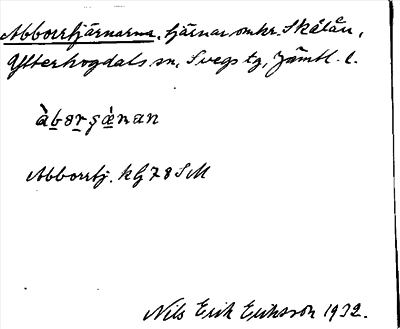 Abborrtjärnarna, tjärnar omkr. Skålån,
Ytterhogdals sn, Svegs tg, Jämtl. l.
àbor̠ṣæ̀nan
Abborrtj. kG 78 SM
Nils Erik Eriksson 1932.